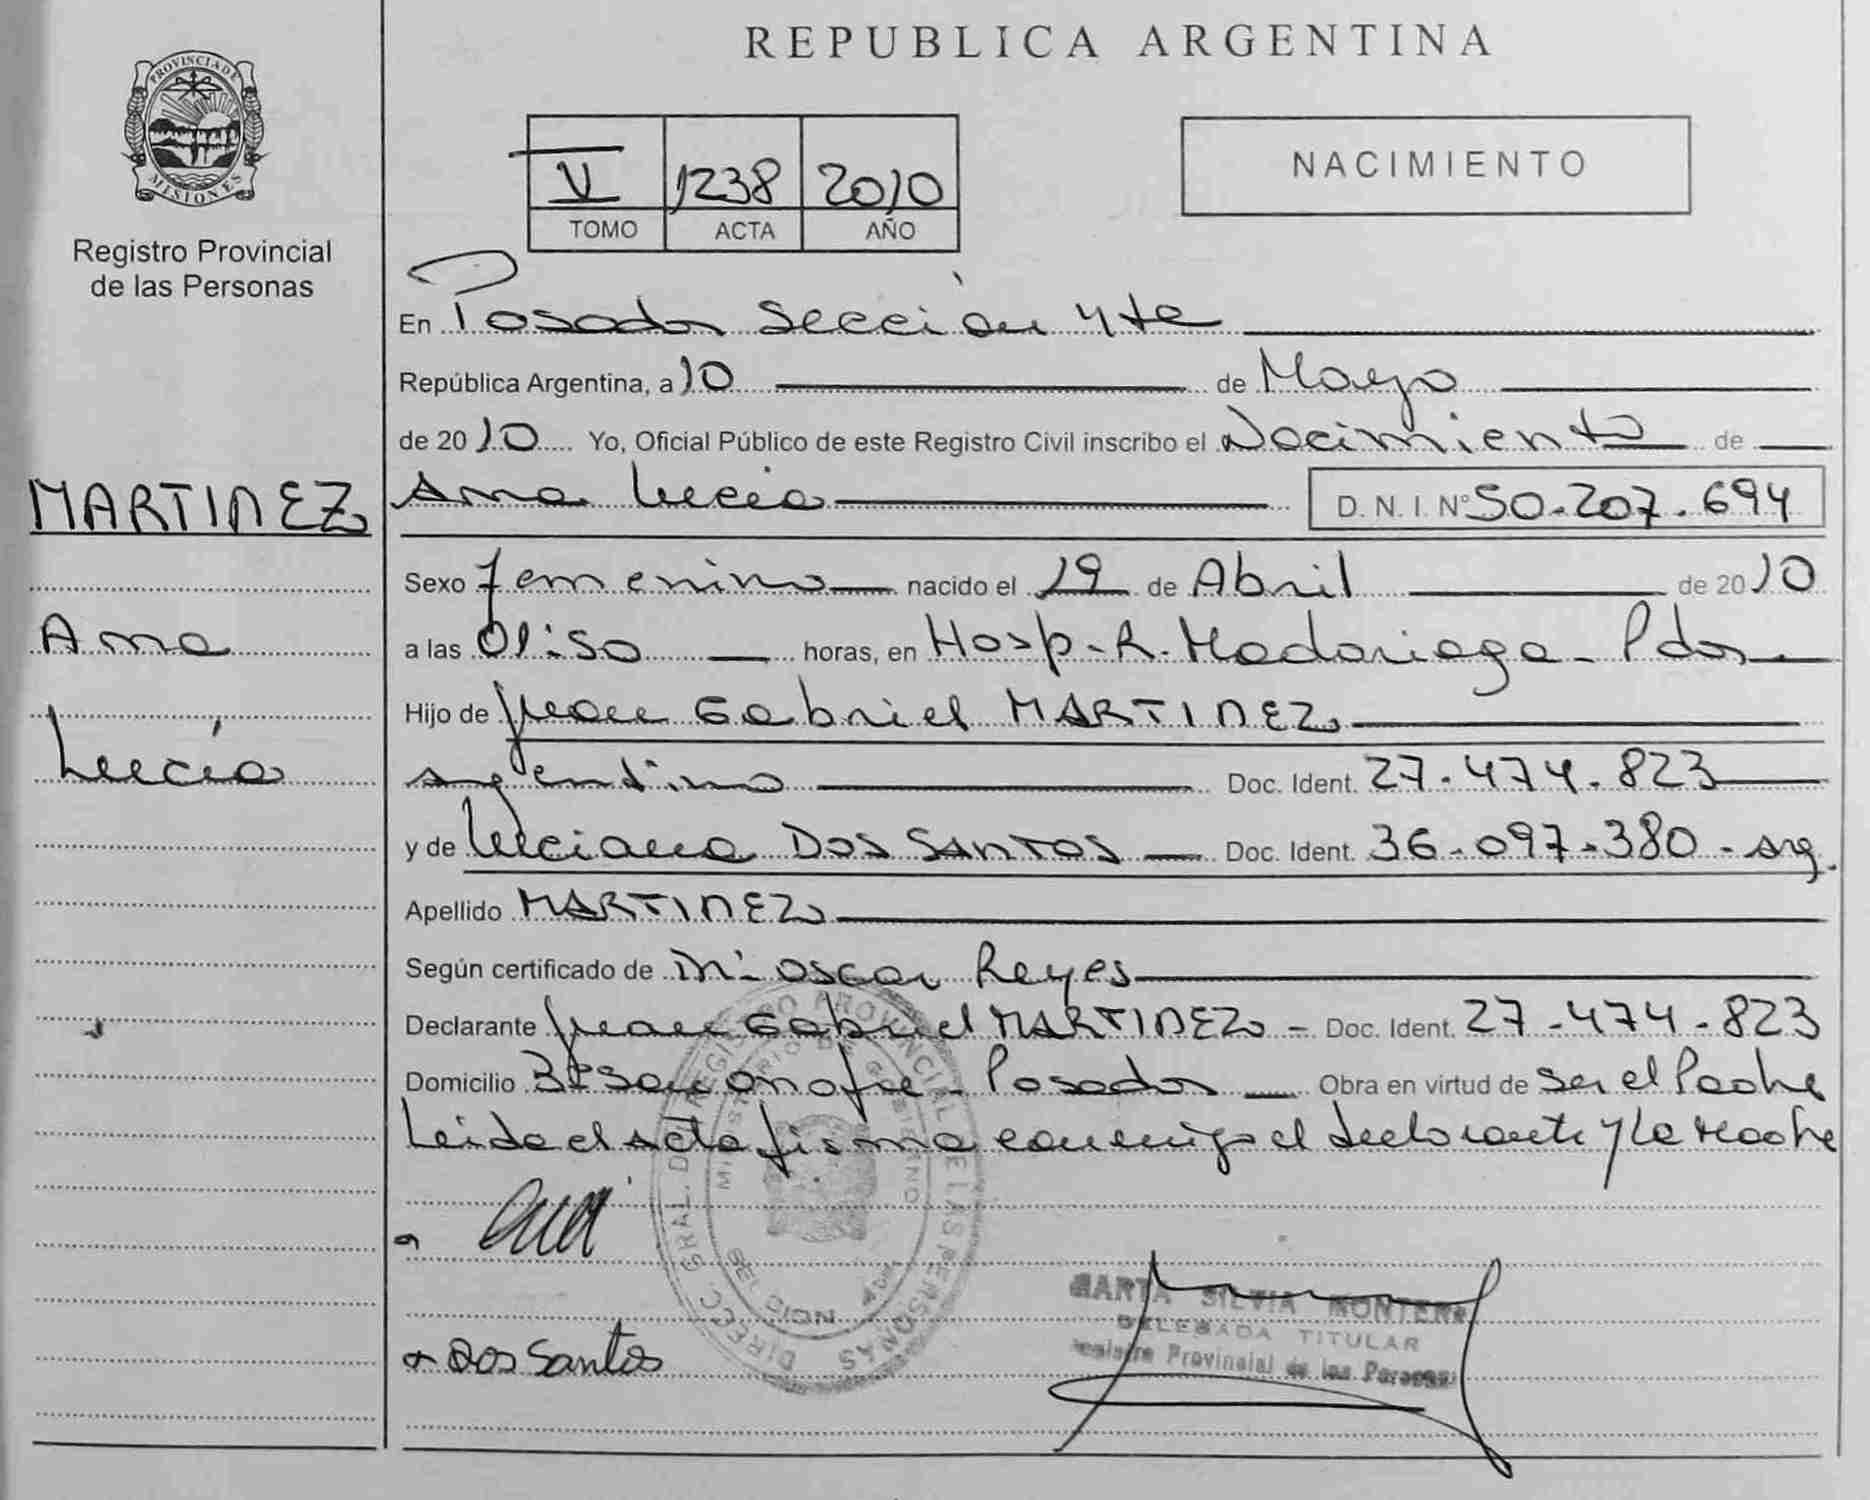 REPUBLICA ARGENTINA
PROVINCIA DE
MISIONES
Registro Provincial
de las Personas
V 1238 2010
TOMO ACTA AÑO
NACIMIENTO
En Posadas Sección 4ta
República Argentina, a 10 de Mayo
de 2010 Yo, Oficial Público de este Registro Civil inscribo el Nacimiento de
MARTINEZ
Ana
Lucía
Ana Lucia D. N. I. Nº 50.207.694
Sexo femenino nacido el 19 de Abril de 2010
a las 01:50 horas, en Hosp. R. Madariaga - Pdas
Hijo de Juan Gabriel MARTINEZ
argentino Doc. Ident. 27.474.823
y de Luciana DOS SANTOS Doc. Ident. 36.097.380 - arg.
Apellido MARTINEZ
Según certificado de Oscar Reyes
Declarante Juan Gabriel MARTINEZ - Doc. Ident. 27.474.823
Domicilio Bº San Onofre - Posadas Obra en virtud de ser el Padre
Leida el acta firma conmigo el declarante y la Madre
DIRECC. GRAL. DE REGISTRO PROVINCIAL DE LAS PERSONAS
MINISTERIO DE GOBIERNO
Dos Santos
MARTA SILVIA MONTERO
DELEGADA TITULAR
Registro Provincial de las Personas